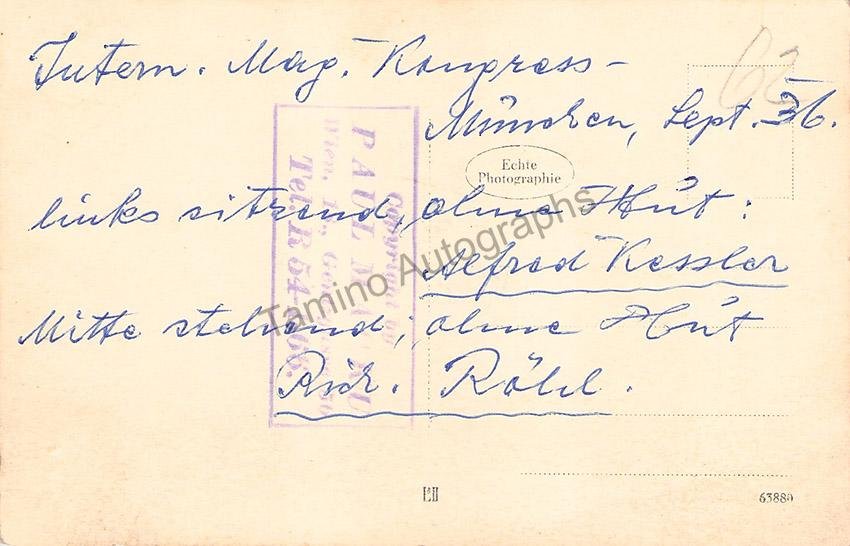 Intern. Mag. Kongress-
München, Sept. 36.
62
Echte
Photographie
links sitzend, ohne Hut:
Alfred Kessler
Mitte stehend; ohne Hut
Rich. Röhl.
Copyright by
PAUL
Wien,
Tel. R 54
Tamino Autographs
63880